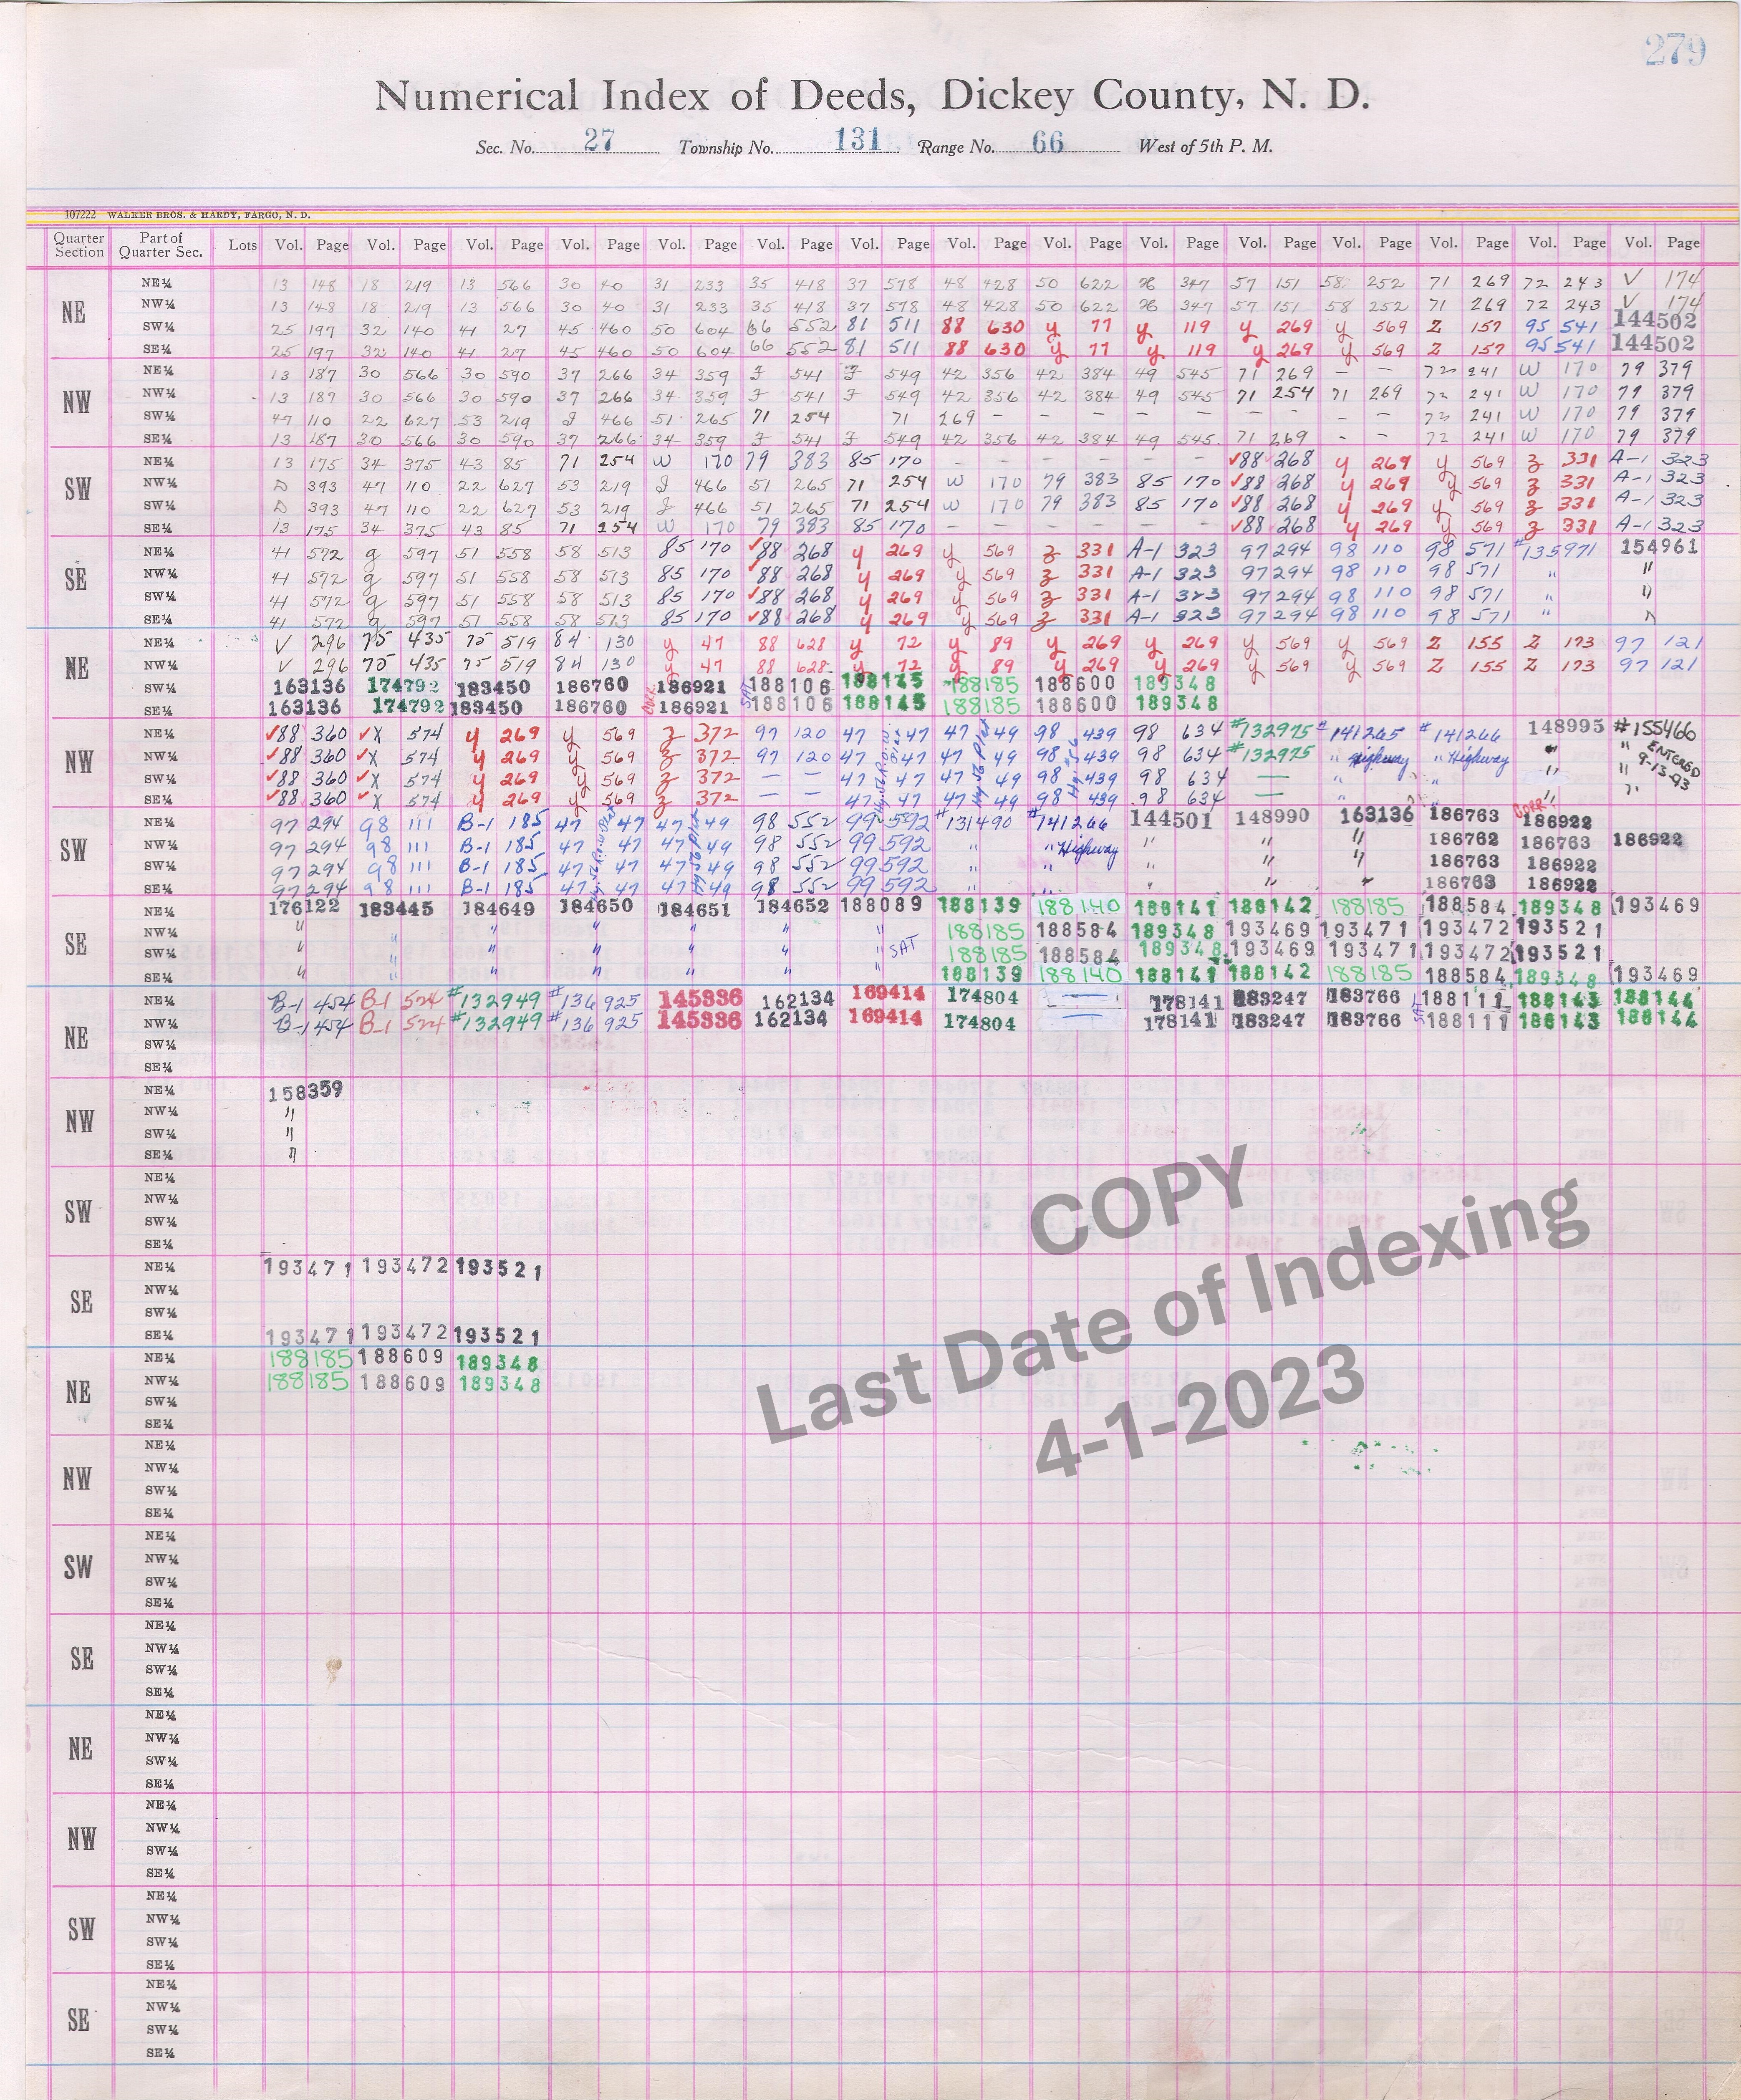 279
Numerical Index of Deeds, Dickey County, N. D.
Sec. No. 27 Township No. 131 Range No. 66 West of 5th P. M.
107222 WALKER BROS. & HARDY, FARGO, N. D.
Quarter Section Part of Quarter Sec. Lots Vol. Page Vol. Page Vol. Page Vol. Page Vol. Page Vol. Page Vol. Page Vol. Page Vol. Page Vol. Page Vol. Page Vol. Page Vol. Page Vol. Page Vol. Page
NE NE¼ 13 148 18 219 13 566 30 40 31 233 35 418 37 578 48 428 50 622 347 57 151 58 252 71 269 72 243 V 174
NW¼ 13 148 18 219 13 566 30 40 31 233 35 418 37 578 48 428 50 622 347 57 151 58 252 71 269 72 243 V 174
SW¼ 25 197 32 140 41 27 45 460 50 604 66 552 81 511 88 630 y 77 y 119 y 269 y 569 Z 157 95 541 144502
SE¼ 25 197 32 140 41 27 45 460 50 604 66 552 81 511 88 630 y 77 y 119 y 269 y 569 Z 157 95 541 144502
NW NE¼ 13 187 30 566 30 590 37 266 34 359 J 541 J 549 42 356 42 384 49 545 71 269 - - 72 241 W 170 79 379
NW¼ 13 187 30 566 30 590 37 266 34 359 J 541 J 549 42 356 42 384 49 545 71 254 71 269 72 241 W 170 79 379
SW¼ 47 110 22 627 53 219 J 466 51 265 71 254 71 269 - - - - - - - - 72 241 W 170 79 379
SE¼ 13 187 30 566 30 590 37 266 34 359 J 541 J 549 42 356 42 384 49 545 71 269 - - 72 241 W 170 79 379
SW NE¼ 13 175 34 375 43 85 71 254 W 170 79 383 85 170 - - - - - - ✓88 268 y 269 y 569 z 331 A-1 323
NW¼ D 393 47 110 22 627 53 219 J 466 51 265 71 254 W 170 79 383 85 170 ✓88 268 y 269 y 569 z 331 A-1 323
SW¼ D 393 47 110 22 627 53 219 J 466 51 265 71 254 W 170 79 383 85 170 ✓88 268 y 269 y 569 z 331 A-1 323
SE¼ 13 175 34 375 43 85 71 254 W 170 79 383 85 170 - - - - - - ✓88 268 y 269 y 569 z 331 A-1 323
SE NE¼ 41 572 g 597 51 558 58 513 85 170 ✓88 268 y 269 y 569 z 331 A-1 323 97 294 98 110 98 571 #135971 154961
NW¼ 41 572 g 597 51 558 58 513 85 170 ✓88 268 y 269 y 569 z 331 A-1 323 97 294 98 110 98 571 " "
SW¼ 41 572 g 597 51 558 58 513 85 170 ✓88 268 y 269 y 569 z 331 A-1 323 97 294 98 110 98 571 " "
SE¼ 41 572 g 597 51 558 58 513 85 170 ✓88 268 y 269 y 569 z 331 A-1 323 97 294 98 110 98 571 " "
NE NE¼ V 296 75 435 75 519 84 130 y 47 88 628 y 72 y 89 y 269 y 269 y 569 y 569 Z 155 Z 173 97 121
NW¼ V 296 75 435 75 519 84 130 y 47 88 628 y 72 y 89 y 269 y 269 y 569 y 569 Z 155 Z 173 97 121
SW¼ 163136 174792 183450 186760 CORR. 186921 SAT 188106 188145 188185 188600 189348
SE¼ 163136 174792 183450 186760 186921 188106 188145 188185 188600 189348
NW NE¼ ✓88 360 ✓X 574 y 269 y 569 z 372 97 120 47 47 47 49 98 439 98 634 #132975 #141265 #141266 148995 #155466
NW¼ ✓88 360 ✓X 574 y 269 y 569 z 372 97 120 47 47 47 49 98 439 98 634 #132975 " Highway " Highway " " ENTERED
SW¼ ✓88 360 ✓X 574 y 269 y 569 z 372 - - 47 47 47 49 98 439 98 634 - " " " " 9-13-93
SE¼ ✓88 360 ✓X 574 y 269 y 569 z 372 - - 47 47 47 49 98 439 98 634 - " " " "
SW NE¼ 97 294 98 111 B-1 185 47 47 47 49 98 552 99 592 #131490 #141266 144501 148990 163136 186763 CORR 186922
NW¼ 97 294 98 111 B-1 185 47 47 47 49 98 552 99 592 " " Highway " " " 186762 186763 186922
SW¼ 97 294 98 111 B-1 185 47 47 47 49 98 552 99 592 " " " " " 186763 186922
SE¼ 97 294 98 111 B-1 185 47 47 47 49 98 552 99 592 " " " " " 186763 186922
SE NE¼ 176122 183445 184649 184650 184651 184652 188089 188139 188140 188141 188142 188185 188584 189348 193469
NW¼ " " " " " " " 188185 188584 189348 193469 193471 193472 193521
SW¼ " " " " " " SAT 188185 188584 189348 193469 193471 193472 193521
SE¼ " " " " " " " 188139 188140 188141 188142 188185 188584 189348 193469
NE NE¼ B-1 454 B-1 524 #132949 #136925 145336 162134 169414 174804 178141 183247 183766 SAT 188111 188143 188144
NW¼ B-1 454 B-1 524 #132949 #136925 145336 162134 169414 174804 178141 183247 183766 188111 188143 188144
SW¼
SE¼
NW NE¼ 158359
NW¼ "
SW¼ "
SE¼ "
SW NE¼
NW¼
SW¼
SE¼
SE NE¼ 193471 193472 193521
NW¼
SW¼
SE¼ 193471 193472 193521
NE NE¼ 188185 188609 189348
NW¼ 188185 188609 189348
SW¼
SE¼
NW NE¼
NW¼
SW¼
SE¼
SW NE¼
NW¼
SW¼
SE¼
SE NE¼
NW¼
SW¼
SE¼
NE NE¼
NW¼
SW¼
SE¼
NW NE¼
NW¼
SW¼
SE¼
SW NE¼
NW¼
SW¼
SE¼
SE NE¼
NW¼
SW¼
SE¼
COPY
Last Date of Indexing
4-1-2023